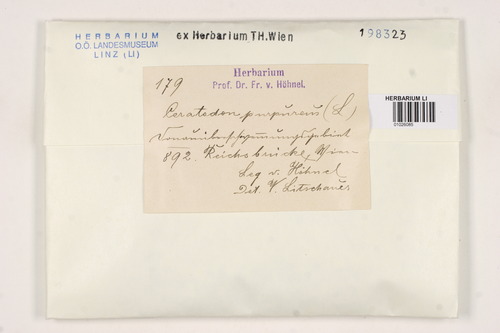 HERBARIUM
O.Ö. LANDESMUSEUM
LINZ (LI)
ex Herbarium TH.Wien
198323
HERBARIUM LI
01026085
179
Herbarium
Prof. Dr. Fr. v. Höhnel.
Ceratodon purpureus (L)
892. Reichsbrücke, Wien
Leg v. Höhnel
Det. V. Litschauer